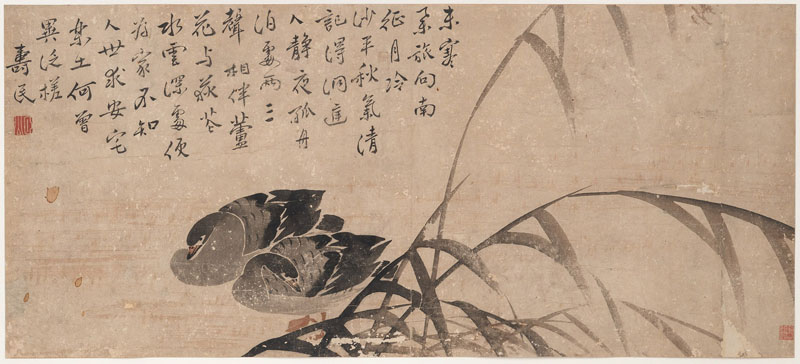 未寒
旅向南
征月冷
沙平秋氣清
記得洞
人静夜孤舟
泊處兩三
聲相伴蘆
花与荻花
水雲深處便
為家不知
人世求安宅
樂土何曾
異泛槎
壽民